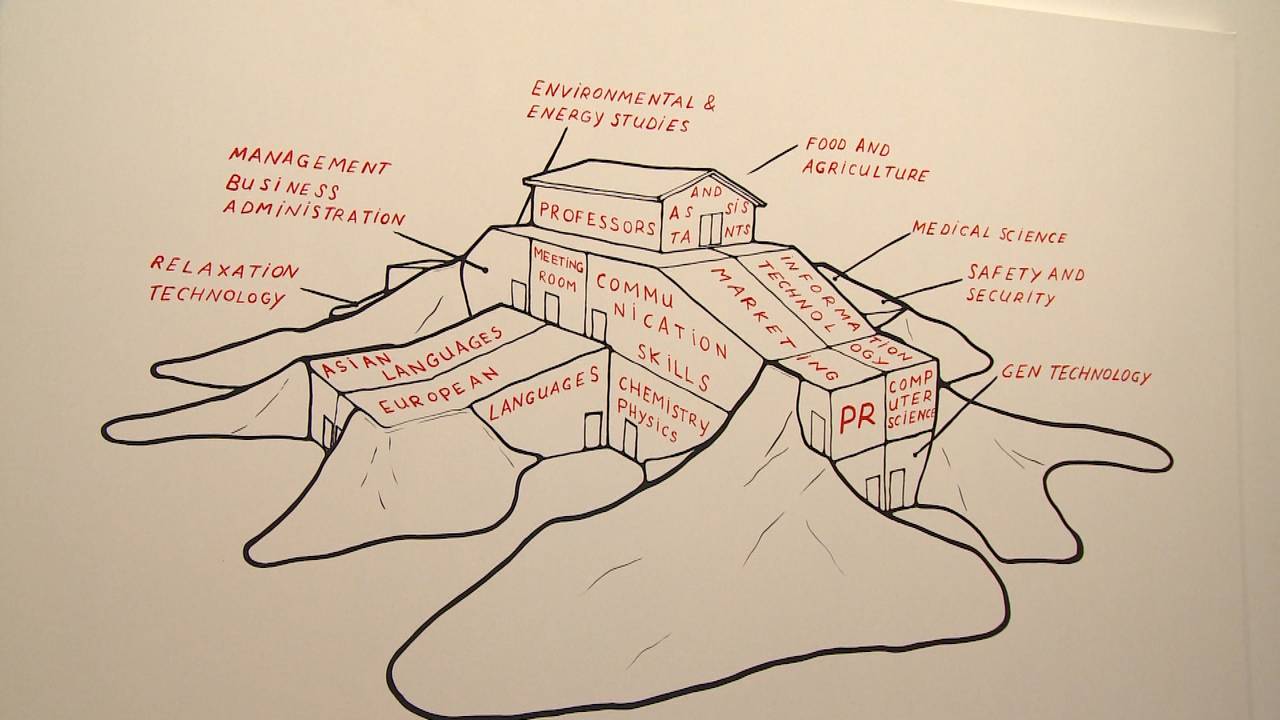 ENVIRONMENTAL &
ENERGY STUDIES
FOOD AND
AGRICULTURE
MANAGEMENT
BUSINESS
ADMINISTRATION
RELAXATION
TECHNOLOGY
MEDICAL SCIENCE
SAFETY AND
SECURITY
GEN TECHNOLOGY
PROFESSORS
AND
AS SIS
TA NTS
MEETING
ROOM
COMMU
NICATION
SKILLS
MARKETING
INFORMATION
TECHNOLOGY
ASIAN
LANGUAGES
EUROPEAN
LANGUAGES
CHEMISTRY
PHYSICS
PR
COMP
UTER
SCIENCE